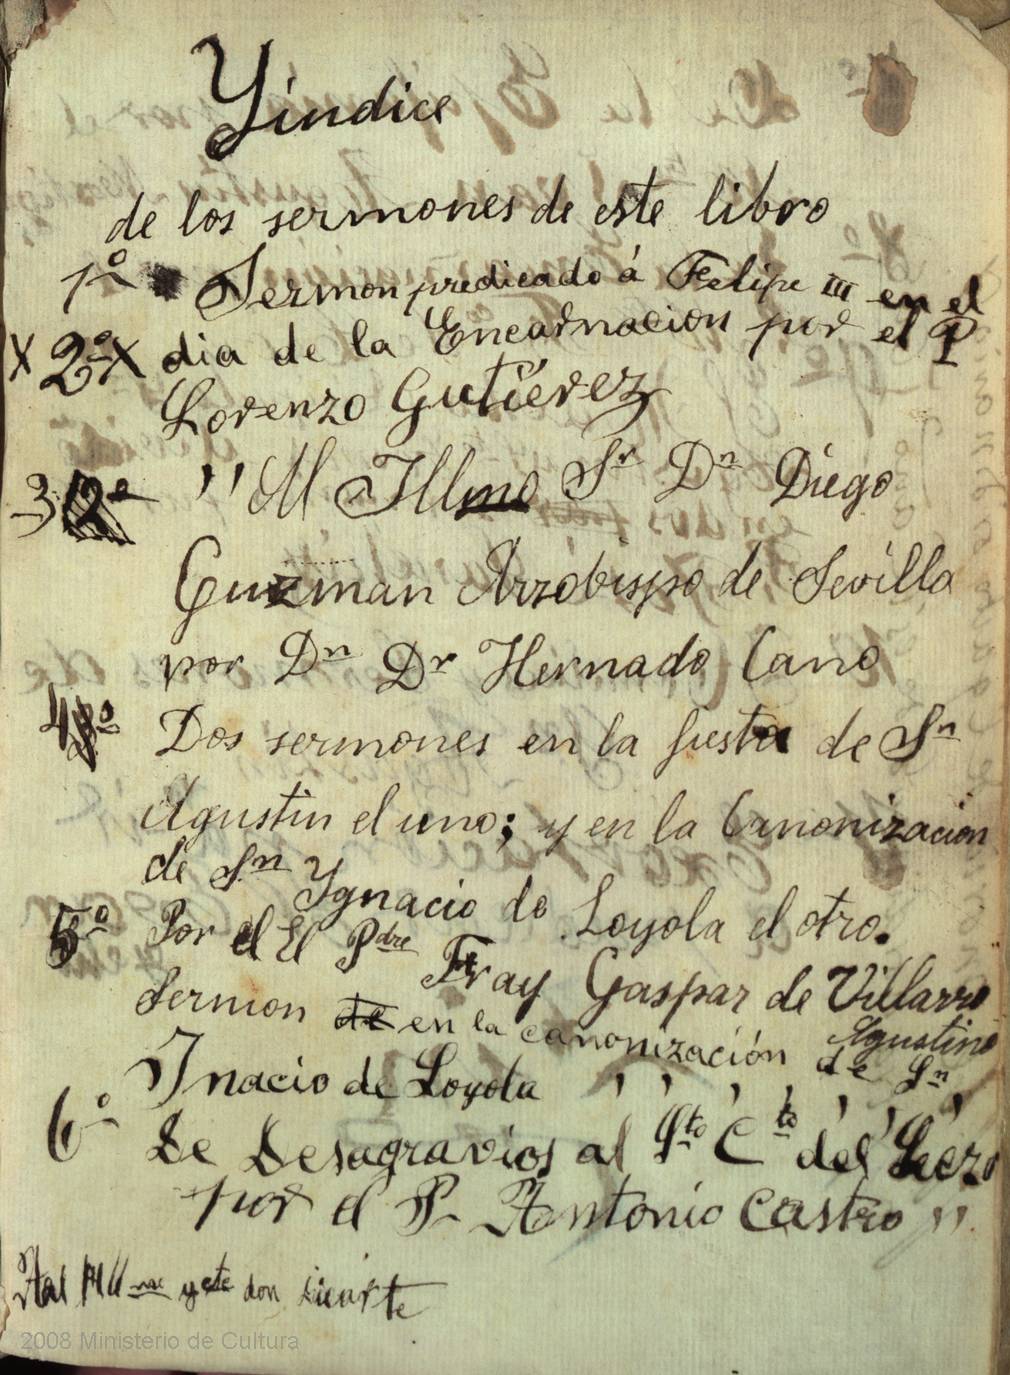 Yindice
de los sermones de este libro
1º Sermon predicado á Felipe III en el
X 2º X dia de la Encarnacion por el P
Lorenzo Gutierez
3 2º " Al Illmo Sr Dn Diego
Guzman Arzobispo de Sevilla
por Dn Dr Hernado Cano
4 3º Dos sermones en la fiesta de Sn
Agustin el uno; y en la Canonizacion
de Sn Ygnacio de Loyola el otro.
5º Por el El Pdre Fray Gaspar de Villarro
Agustino
Sermon de en la canonización de Sn
Inacio de Loyola , , , , , , ,
6º De Desagravios al Sto C to del
por el P. Antonio Castro "
y este don
2008 Ministerio de Cultura